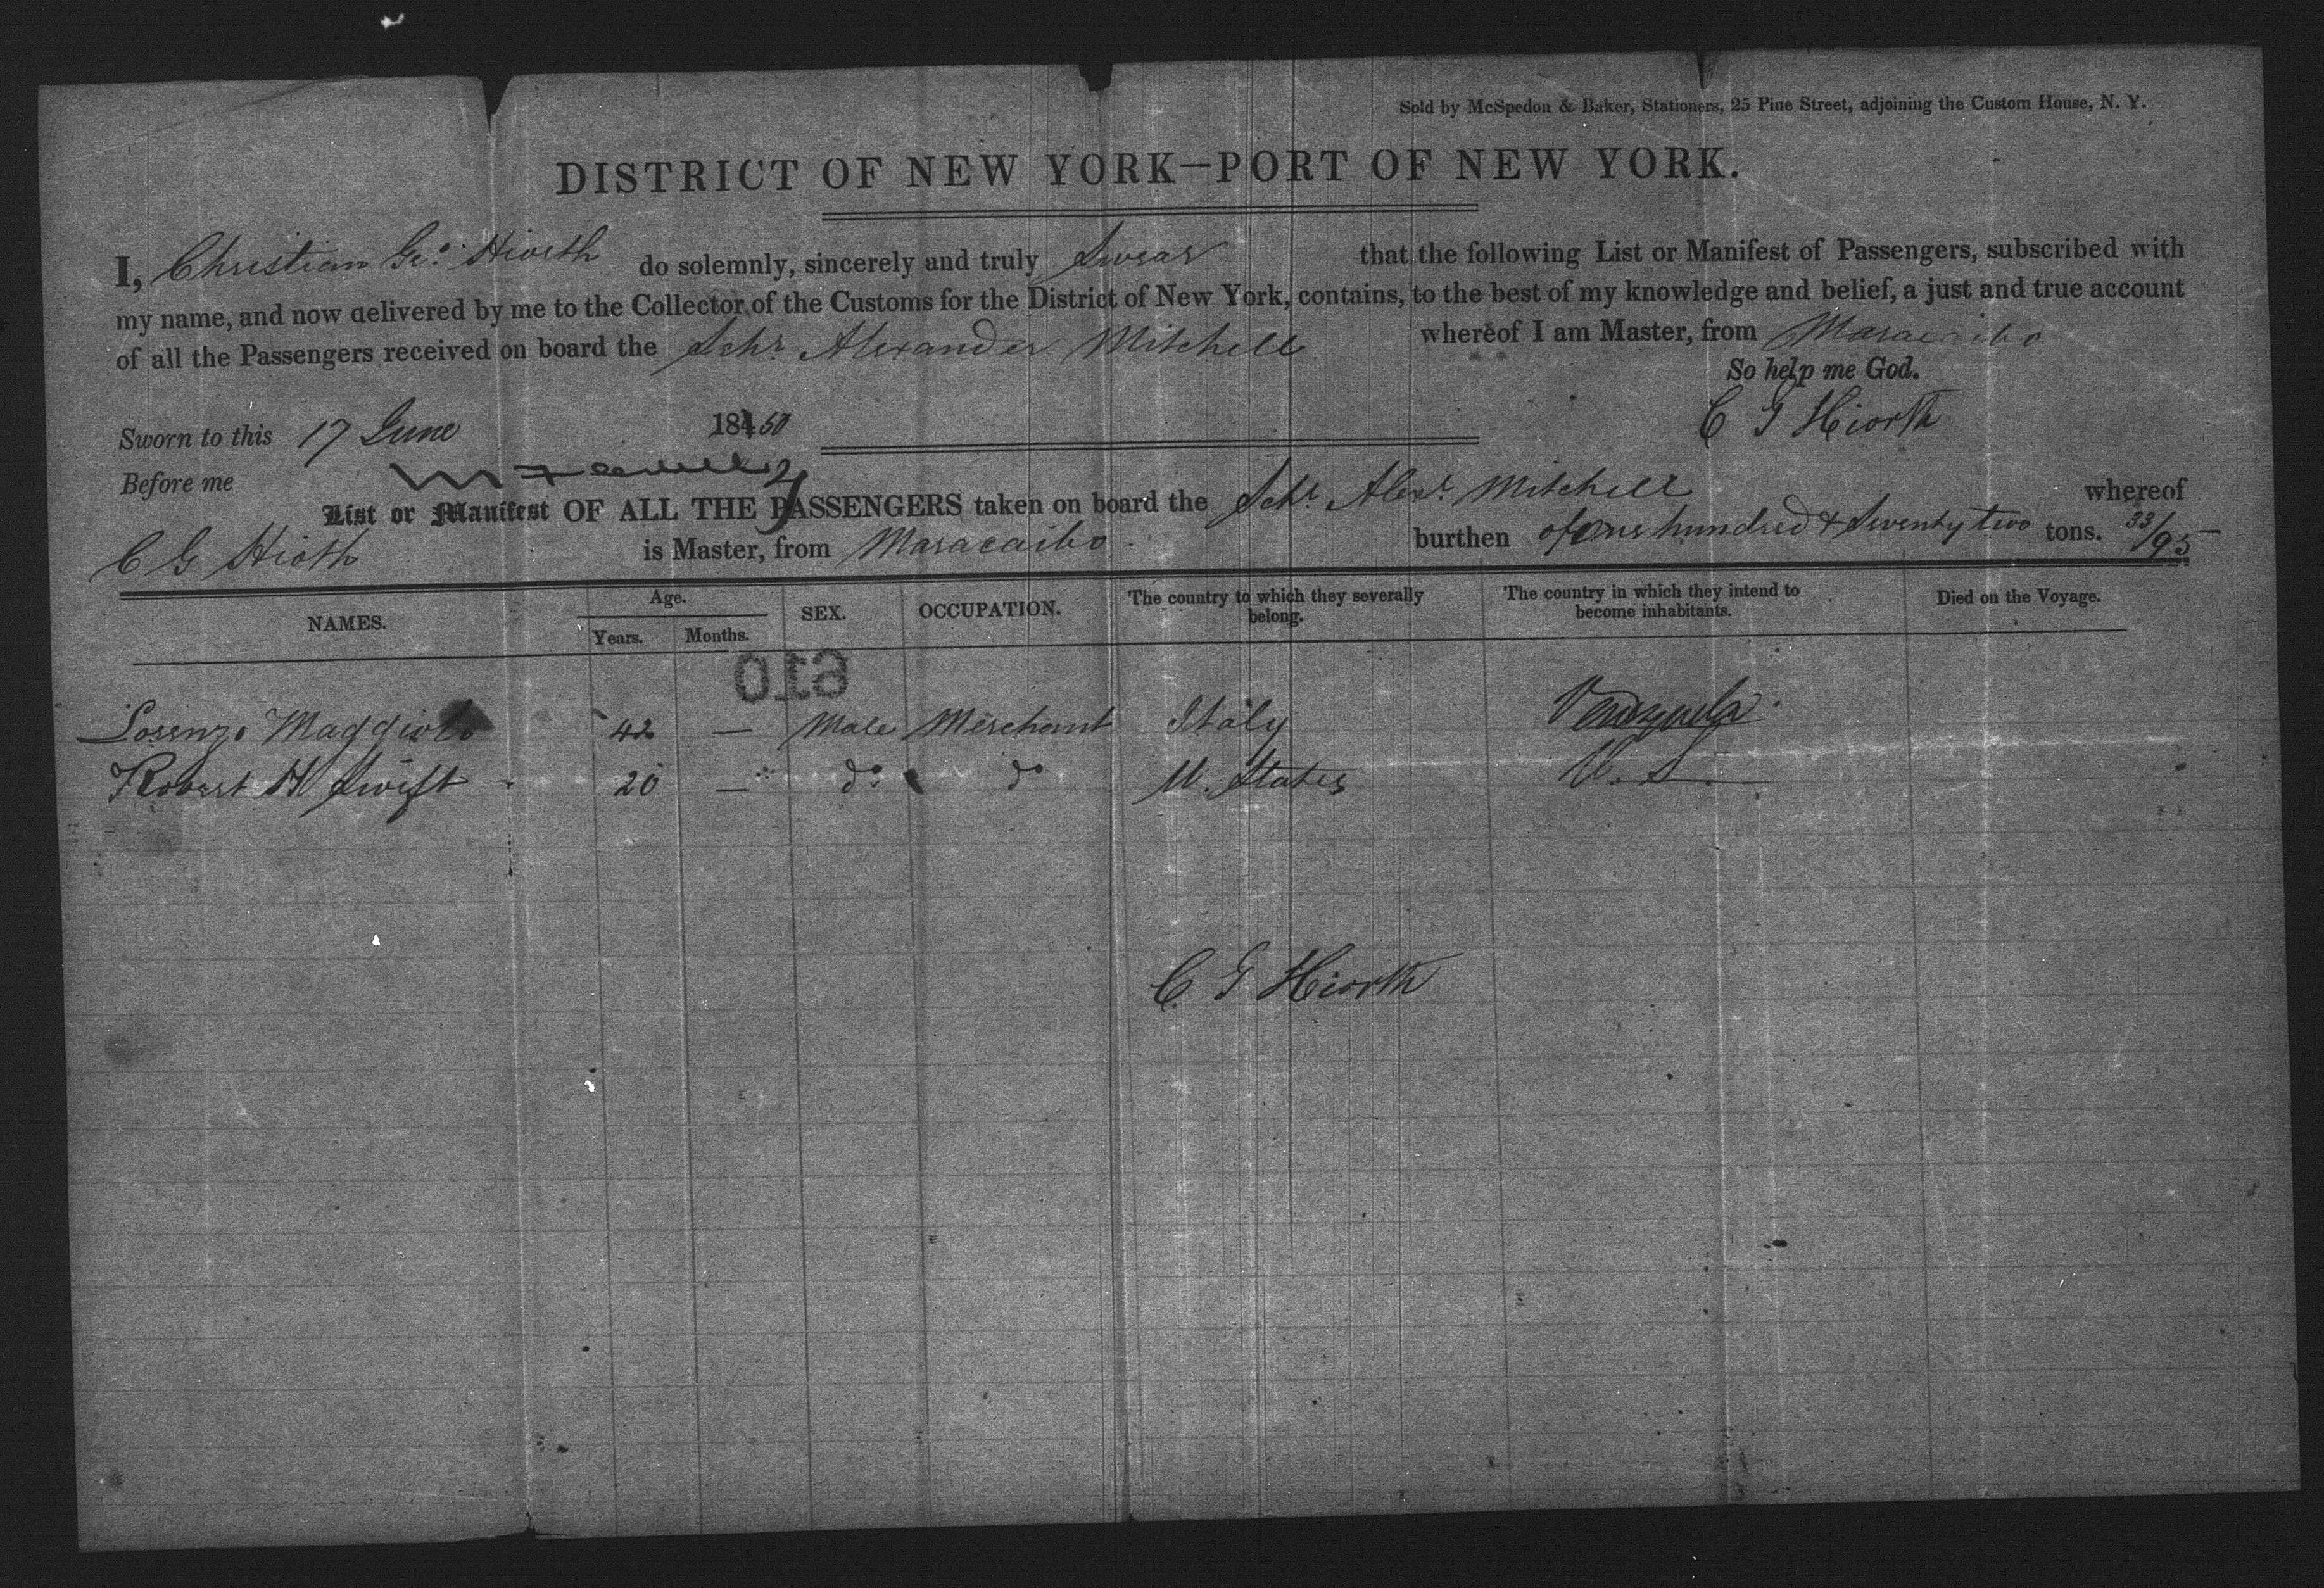 Sold by McSpedon & Baker, Stationers, 25 Pine Street, adjoining the Custom House, N. Y.
DISTRICT OF NEW YORK—PORT OF NEW YORK.
I, Christian Geo: Hiorth do solemnly, sincerely and truly Swear that the following List or Manifest of Passengers, subscribed with
my name, and now delivered by me to the Collector of the Customs for the District of New York, contains, to the best of my knowledge and belief, a just and true account
of all the Passengers received on board the Schr Alexander Mitchell whereof I am Master, from Maracaibo
So help me God.
Sworn to this 17 June 18450 C G Hiorth
Before me
List or Manifest OF ALL THE PASSENGERS taken on board the Schr Alexr Mitchell whereof
C G Hioth is Master, from Maracaibo. burthen of one hundred & Seventy two tons. 33/95
NAMES. Age. SEX. OCCUPATION. The country to which they severally belong. The country in which they intend to become inhabitants. Died on the Voyage.
Years. Months.
610
Lorenzo Maggiolo 42 — Male Merchant Italy Venezuela
Robert H Swift 20 — do do U. States U. S.
C. G Hiorth